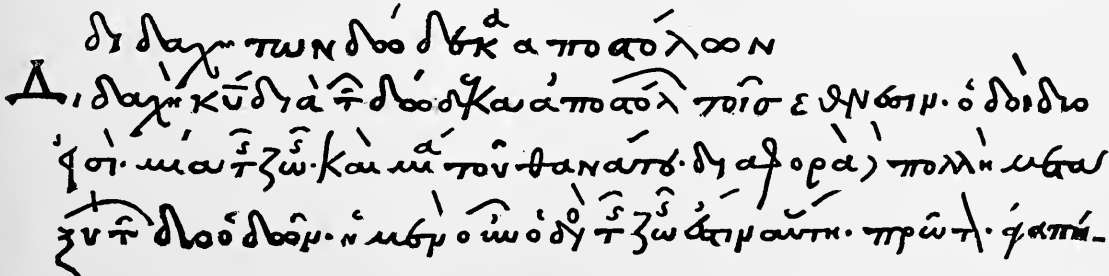 διδαχὴ τῶν δώδεκα ἀποστόλων
Διδαχὴ κ̅υ̅ διὰ τ̑ δώδεκα ἀποστόλ τοῖς ἔθνεσιν· ὁδοὶ δύο
εἰσί· μία τ̑ς ζω̑ς· καὶ μία τοῦ θανάτου· διαφορὰ δὲ πολλὴ μετα
ξὺ τ̑ δύο ὁδῶν· ἡ μὲν οὖν ὁδὸς τ̑ς ζω̑ς ἐστιν αὕτη· πρῶτ· ἀγαπή-